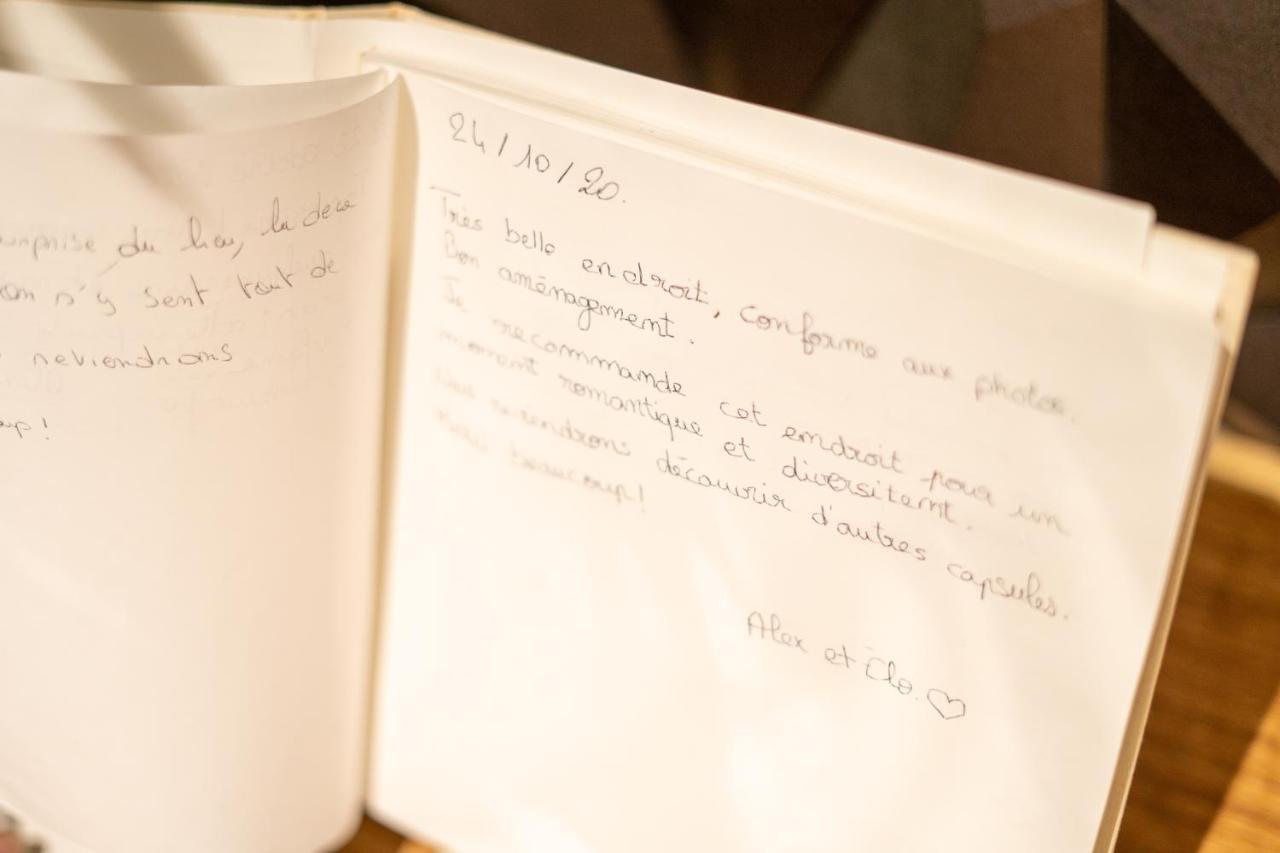 surprise du lieu, la déco
on n'y sent tout de
reviendrons
!
24/10/20.
Très belle endroit, conforme aux photos.
Bon aménagement.
Je recommande cet endroit pour un
moment romantique et diversitent.
Nous reviendrons découvrir d'autres capsules.
Merci beaucoup!
Alex et Clo. ♡